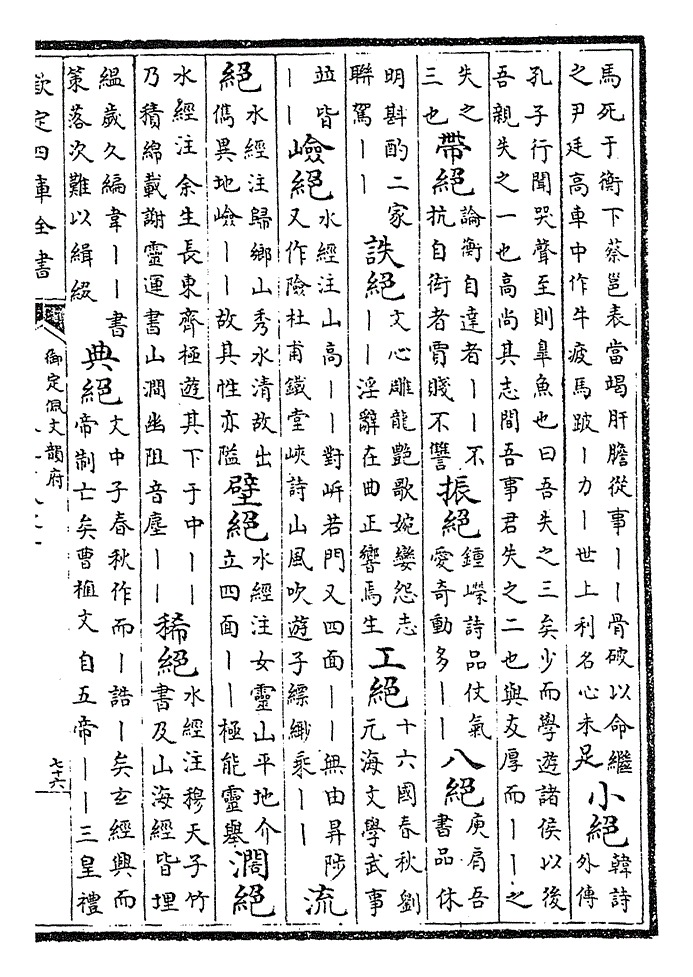 馬死于衡下蔡邕表當竭肝膽從事丨丨骨破以命繼
之尹廷高車中作牛疲馬跛丨力丨世上利名心未足
小絕
韓詩
外傳
孔子行聞哭聲至則臯魚也曰吾失之三矣少而學遊諸侯以後
吾親失之一也高尚其志間吾事君失之二也與友厚而丨丨之
失之
三也
帶絕
論衡自達者丨丨不
抗自衒者賈賤不讐
振絕
鍾嶸詩品仗氣
愛奇動多丨丨
八絕
庾肩吾
書品休
明斟酌二家
聯駕丨丨
詄絕
文心雕龍艷歌婉孌怨志
丨丨淫辭在曲正響焉生
工絕
十六國春秋劉
元海文學武事
並皆
丨丨
嶮絕
水經注山高丨丨對㟁若門又四面丨丨無由昇陟
又作險杜甫鐵堂峽詩山風吹遊子縹緲乘丨丨
流
絕
水經注歸鄉山秀水清故出
儁異地嶮丨丨故其性亦隘
壁絕
水經注女靈山平地介
立四面丨丨極能靈舉
澗絕
水經注余生長東齊極遊其下于中丨丨
乃積綿載謝靈運書山澗幽阻音塵丨丨
稀絕
水經注穆天子竹
書及山海經皆埋
縕歲久編韋丨丨書
策落次難以緝綴
典絕
文中子春秋作而丨誥丨矣玄經興而
帝制亡矣曹植文自五帝丨丨三皇禮
欽定四庫全書
御定佩文韻府
七十六